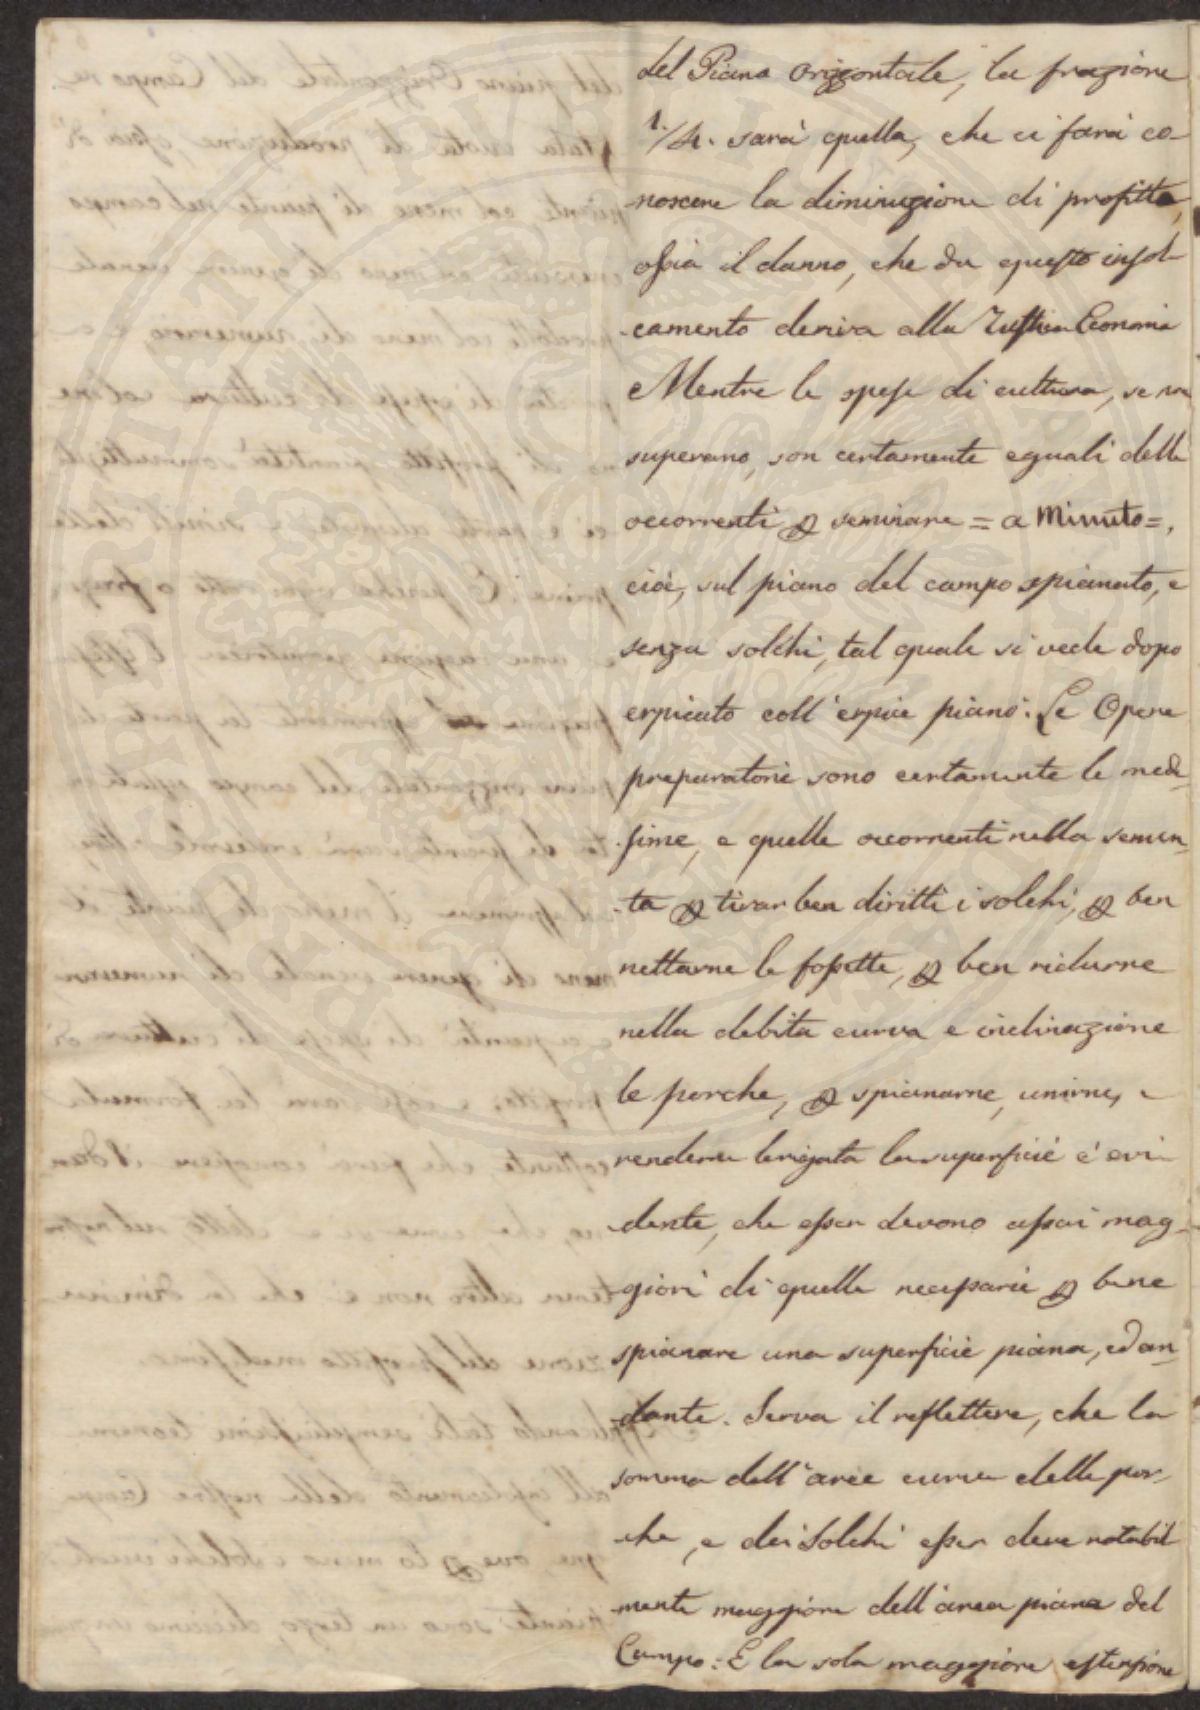 del Piano Orizzontale, la frazione
1./4. sarà quella, che ci farà co-
noscere la diminuzione di profitto,
ossia il danno, che da questo insol-
camento deriva alla Rustica Economia
Mentre le spese di cultura, se non
superano, son certamente eguali delle
occorrenti p seminare = a Minuto =,
cioè, sul piano del campo spianato, e
senza solchi, tal quale si vede dopo
erpicato coll'erpice piano. Le Opere
preparatorie sono certamente le mede-
sime, e quelle occorrenti nella semen-
ta p tirar ben diritti i solchi, p ben
nettarne le fossette, p ben ridurne
nella debita curva e inclinazione
le porche, p spianarne, unirne, e
renderne levigata la superficie è evi-
dente, che esser devono assai mag-
giori di quelle necessarie p bene
spianare una superficie piana, ed an-
dante. Serva il reflettere, che la
somma dell'aree curve delle por-
che, e dei Solchi esser deve notabil-
mente maggiore dell'area piana del
Campo: E la sola maggiore estensione